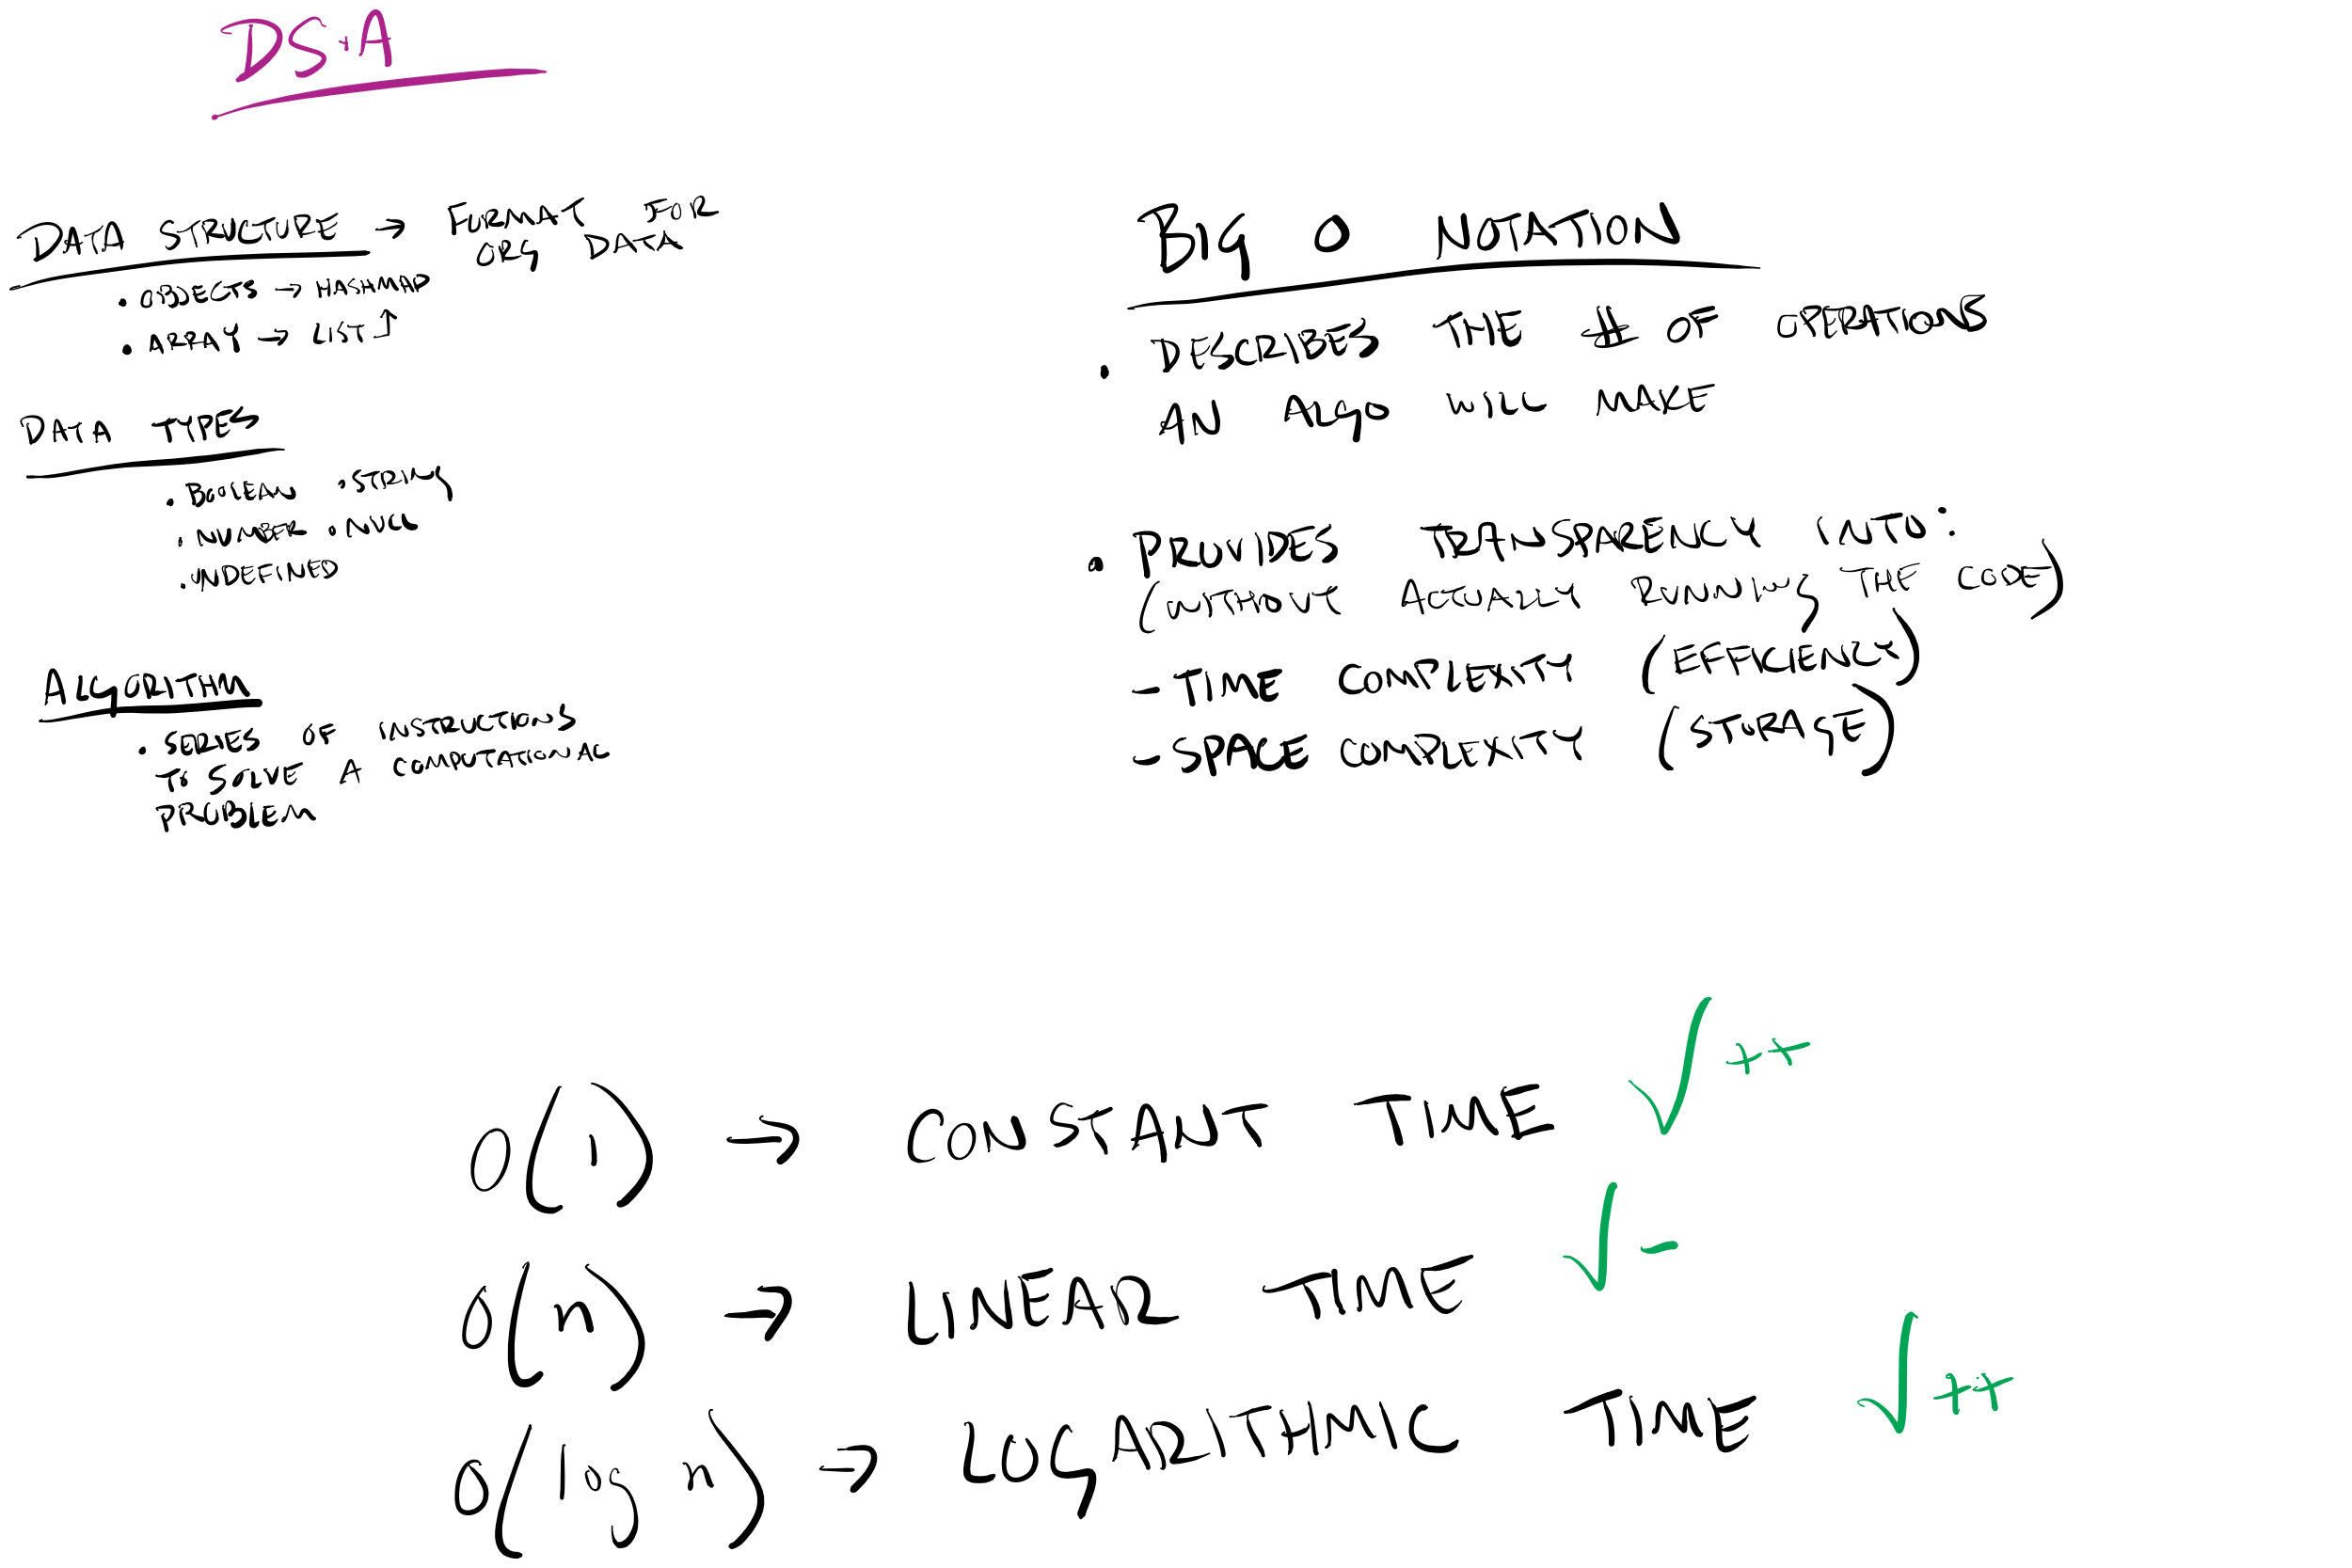 DS+A
DATA STRUCTURE → FORMAT FOR
ORG DATA
• OBJECTS → HASHMAP
• ARRAY → LIST ↑
DATA TYPES
• BOOLEAN • STRING
• NUMBER • NULL
• UNDEFINED
ALGORITHM
• SERIES OF INSTRUCTIONS
TO SOLVE A COMPUTATIONAL
PROBLEM
BIG O NOTATION
• DESCRIBES THE # OF OPERATIONS
AN ALGO WILL MAKE
• PROVIDES TRANSPARENCY INTO:
(WITHOUT ACTUALLY RUNNING THE CODE)
- TIME COMPLEXITY (EFFICIENCY)
- SPACE COMPLEXITY (STORAGE)
O(1) → CONSTANT TIME ✓++
O(n) → LINEAR TIME ✓-
O(log n) → LOGARITHMIC TIME ✓++